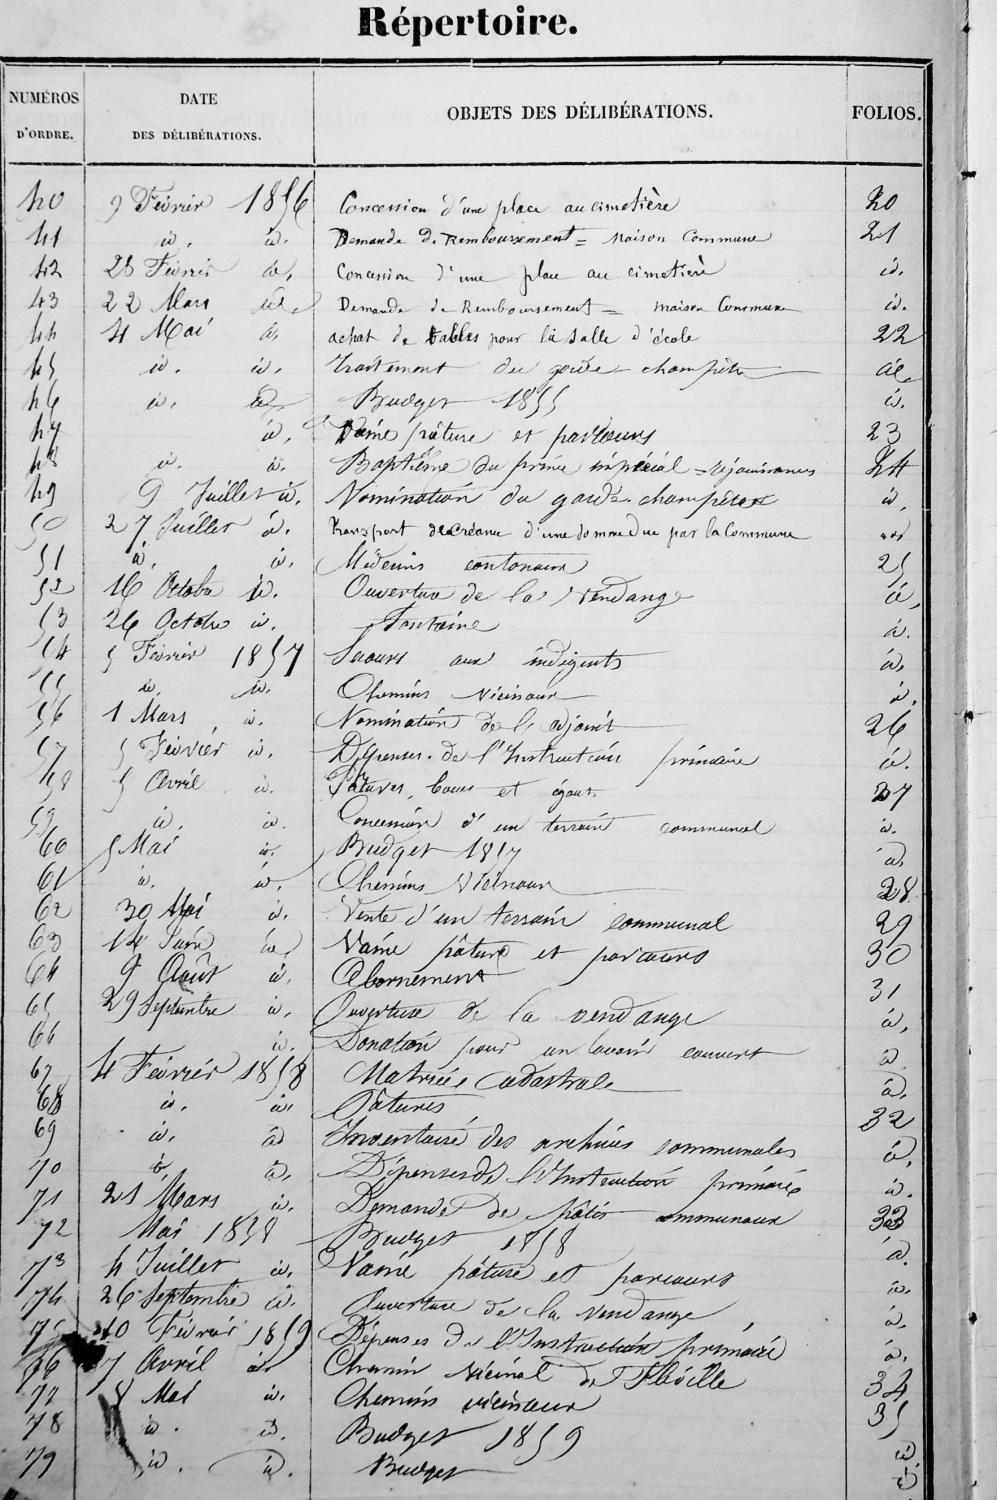 Répertoire.
NUMÉROS D'ORDRE. DATE DES DÉLIBÉRATIONS. OBJETS DES DÉLIBÉRATIONS. FOLIOS.
40 9 Février 1856 Concession d'une place au cimetière 20
41 id. id. Demande de Remboursement = Maison Commune 21
42 28 Février id. Concession d'une place au cimetière id.
43 22 Mars id. Demande de Remboursement = maison Commune id.
44 4 Mai id. achat de tables pour la salle d'école 22
45 id. id. traitement du garde champêtre id.
46 id. id. Budget 1855 id.
47 id. Vaine pâture et parcours 23
48 id. id. Baptême du prince impérial = réjouissances 24
49 9 Juillet id. Nomination du garde champêtre id.
50 27 Juillet id. transport de créance d'une somme due par la Commune id.
51 id. id. Médecins cantonaux 25
52 16 Octobre id. Ouverture de la vendange id.
53 26 Octobre id. Fontaine id.
54 5 Février 1857 Secours aux indigents id.
55 id. id. Chemins vicinaux id.
56 1 Mars id. Nomination de l'adjoint 26
57 5 Février id. Dépenses de l'Instruction primaire id.
58 5 Avril id. Pâtures, boues et égouts 27
59 id. id. Concession d'un terrain communal id.
60 5 Mai id. Budget 1857 id.
61 id. id. Chemins Vicinaux 28
62 30 Mai id. Vente d'un terrain communal 29
63 14 Juin id. Vaine pâture et parcours 30
64 9 Août id. Abornement
65 29 Septembre id. Ouverture de la vendange 31
66 id. Donation pour un lavoir couvert id.
67 4 Février 1858 Matrice Cadastrale id.
68 id. id. Pâtures id.
69 id. id. Inventaire des archives communales 32
70 id. id. Dépenses de l'Instruction primaire id.
71 21 Mars id. Demande de pâtis communaux id.
72 Mai 1858 Budget 1858 33
73 4 Juillet id. Vaine pâture et parcours id.
74 26 Septembre id. Ouverture de la vendange id.
75 10 Février 1859 Dépenses de l'Instruction primaire id.
76 7 Avril id. Chemin vicinal de Fléville id.
77 8 Mai id. Chemins vicinaux 34
78 id. id. Budget 1859 35
79 id. id. Budget id.
id.